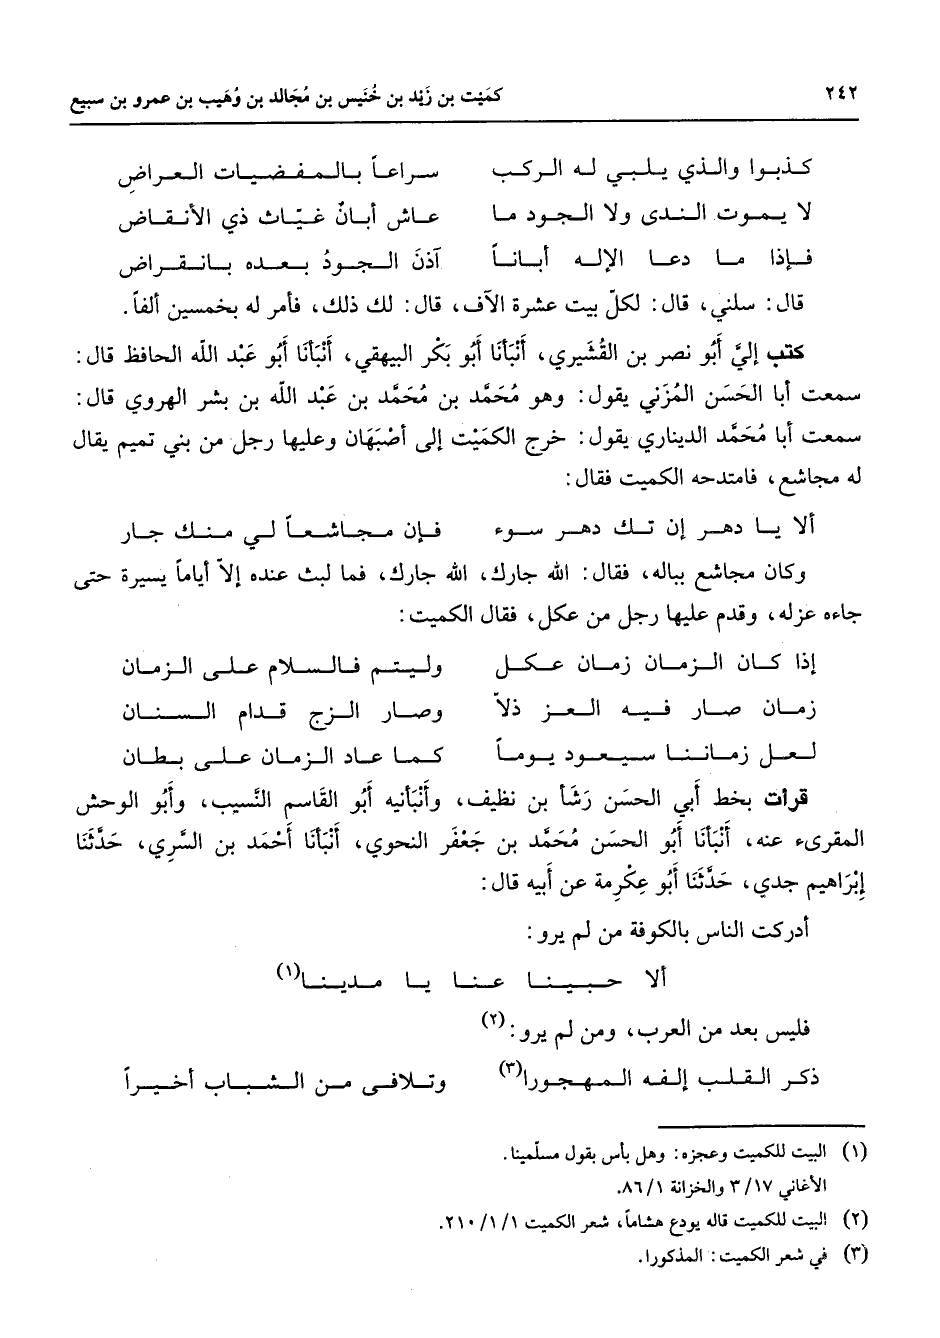 ٢٤٢ كمَيْت بن زَيْد بن خُنَيس بن مُجَالد بن وُهَيب بن عمرو بن سبيع
كذبوا والذي يلبي له الركب سراعاً بالمفضيات العراض
لا يموت الندى ولا الجود ما عاش أبانٌ غيّاث ذي الأنقاض
فإذا ما دعا الإله أباناً آذنَ الجودُ بعده بانقراض
قال: سلني، قال: لكلّ بيت عشرة آلاف، قال: لك ذلك، فأمر له بخمسين ألفاً.
كتب إليَّ أَبُو نصر بن القُشَيري، أَنْبَأنَا أَبُو بَكْر البيهقي، أَنْبَأنَا أَبُو عَبْد اللّه الحافظ قال:
سمعت أبا الحَسَن المُزَني يقول: وهو مُحَمَّد بن مُحَمَّد بن عَبْد اللّه بن بشر الهروي قال:
سمعت أبا مُحَمَّد الديناري يقول: خرج الكمَيْت إلى أصْبَهَان وعليها رجل من بني تميم يقال
له مجاشع، فامتدحه الكميت فقال:
ألا يا دهر إن تك دهر سوء فإن مجاشعاً لي منك جار
وكان مجاشع بباله، فقال: اللّه جارك، اللّه جارك، فما لبث عنده إلاّ أياماً يسيرة حتى
جاءه عزله، وقدم عليها رجل من عكل، فقال الكميت:
إذا كان الزمان زمان عكل وليتم فالسلام على الزمان
زمان صار فيه العز ذلاً وصار الزج قدام السنان
لعل زماننا سيعود يوماً كما عاد الزمان على بطان
قرأت بخط أبي الحسَن رَشَأ بن نظيف، وأَنْبَأنيه أَبُو القَاسم النَّسيب، وأَبُو الوحش
المقرىء عنه، أَنْبَأنَا أَبُو الحسَن مُحَمَّد بن جَعْفَر النحوي، أَنْبَأنَا أَحْمَد بن السَّري، حَدَّثَنَا
إبْرَاهيم جدي، حَدَّثَنَا أَبُو عِكْرِمة عن أبيه قال:
أدركت الناس بالكوفة من لم يرو:
ألا حيينا عنا يا مدينا(١)
فليس بعد من العرب، ومن لم يرو:(٢)
ذكر القلب إلفه المهجورا(٣) وتلافى من الشباب أخيراً
(١) البيت للكميت وعجزه: وهل بأس بقول مسلّمينا.
الأغاني ١٧/ ٣ والخزانة ١/ ٨٦.
(٢) البيت للكميت قاله يودع هشاماً، شعر الكميت ١/ ١/ ٢١٠.
(٣) في شعر الكميت: المذكورا.